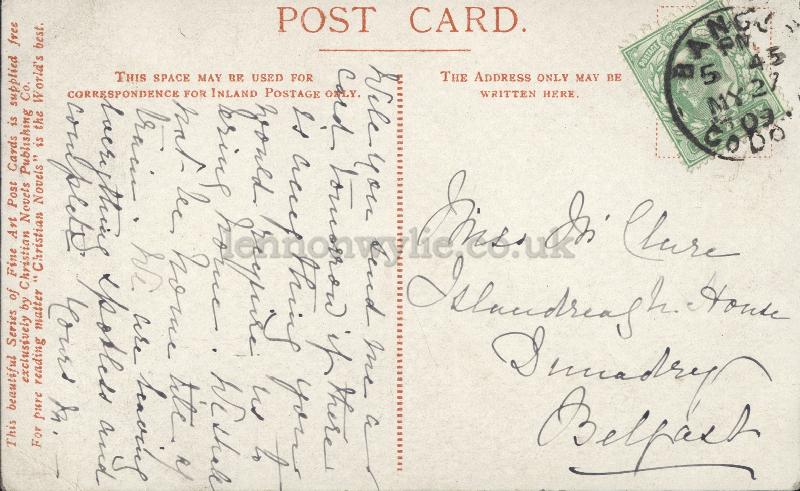 POST CARD.
THIS SPACE MAY BE USED FOR
CORRESPONDENCE FOR INLAND POSTAGE ONLY.
THE ADDRESS ONLY MAY BE
WRITTEN HERE.
This beautiful Series of Fine Art Post Cards is supplied free
exclusively by Christian Novels Publishing Co.
For pure reading matter "Christian Novels" is the World's best.
Will you send me a
card tomorrow if there
is anything you
would require us to
bring home. We shall
not be home till 4
train. We are leaving
everything spotless and
complete. Yours M.
Miss McClure
Islandreagh House
Dunadry
Belfast
BANGO
5 45
MY 27
09
CO DO
lennonwylie.co.uk